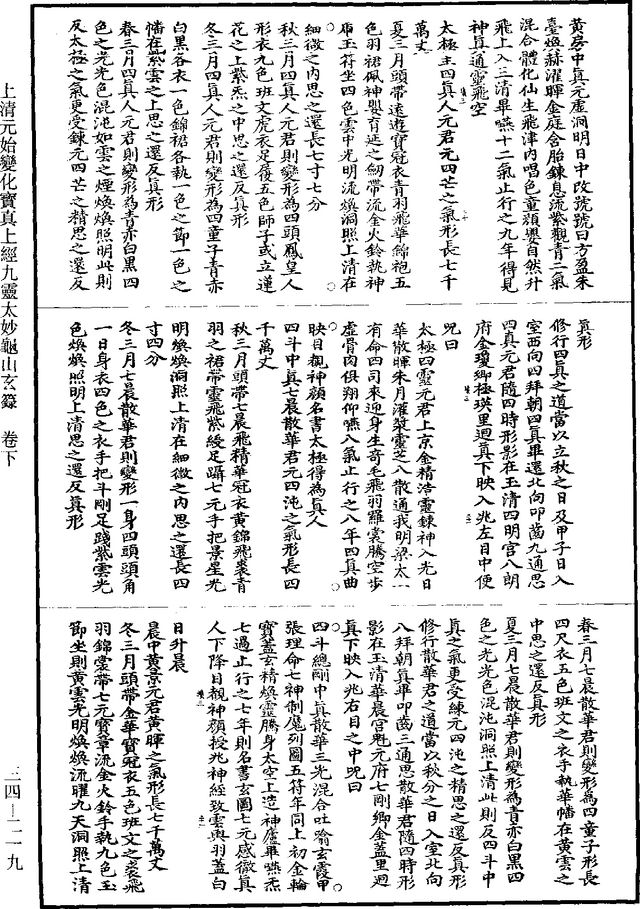 黃房中真元虛洞明日中改號號曰方盈朱
臺煥赫濯暉金庭含胎鍊息流紫觀青二氣
混合體化仙生飛津內唱色童顏嬰自然升
飛上入三清畢嚥十二氣止行之九年得見
神真通靈飛空
太極主四真人元君元四芒之氣形長七千
萬丈
夏三月頭帶遠遊寶冠衣青羽飛華綿袍五
色羽裙佩神嬰育延之劒帶流金火鈴執神
虎玉符坐四色雲中光明流煥洞照上清在
細微之內思之還長七寸七分
秋三月四真人元君則變形為四頭鳳皇人
形衣九色班文虎衣足履五色師子或立蓮
花之上紫炁之中思之還反真形
冬三月四真人元君則變形為四童子青赤
白黑各衣一色錦裙各執一色之節一色之
幡在紫雲之上思之還反真形
春三月四真人元君則變形為青赤白黑四
色之光光色混沌如雲之煙煥煥照明此則
反太極之氣更受鍊元四芒之精思之還反
真形
修行四真之道當以立秋之日及甲子日入
室西向四拜朝四真畢還北向叩齒九通思
四真元君隨四時形影在玉清四明宮八朗
府金瓊鄉極瑛里迴真下映入兆左目中便
呪曰
太極四靈元君上京金精浩靈鍊神入光日
華散暉朱月濯漿靈芝八散通我明梁太一
有命四司來迎身生奇毛飛羽羅雲騰空步
虛骨肉俱翔仰嚥八氣止行之八年四真曲
映目覩神顏名書太極得為真人
四斗中真七晨散華君元四沌之氣形長四
千萬丈
秋三月頭帶七晨飛精華冠衣黃錦飛裘青
羽之裙帶靈飛紫綬足躡七元手把景星光
明煥煥洞照上清在細微之內思之還長四
寸四分
冬三月七晨散華君則變形一身四頭頭角
一日身衣四色之衣手把斗剛足踐紫雲光
色煥煥照明上清思之還反真形
春三月七晨散華君則變形為四童子形長
四尺衣五色班文之衣手執華幡在黃雲之
中思之還反真形
夏三月七晨散華君則變形為青赤白黑四
色之光光色混沌洞照上清此則反四斗中
真之氣更受練元四沌之精思之還反真形
修行散華君之道當以秋分之日入室北向
八拜朝真畢叩齒三通思散華君隨四時形
影在玉清華晨宮魁元府七剛鄉金蓋里迴
真下映入兆右目之中呪曰
四斗總剛中真散華三光混合吐喻玄霞甲
張理命七神制魔列圖五符年同上初金輪
寶蓋玄精煥靈騰身太空上造神廬畢嚥炁
七過止行之七年則名書玄圖七元感徹真
人下降目覩神顏授兆神經致雲輿羽蓋白
日升晨
晨中黃景元君黃暉之氣形長七千萬丈
冬三月頭帶金華寶冠衣五色班文之裘飛
羽錦裳帶七元寶章流金火鈴手執九色玉
節坐則黃雲光明煥煥流曜九天洞照上清
上清元始變化寶真上經九靈太妙龜山玄籙　卷下
三四—二一九